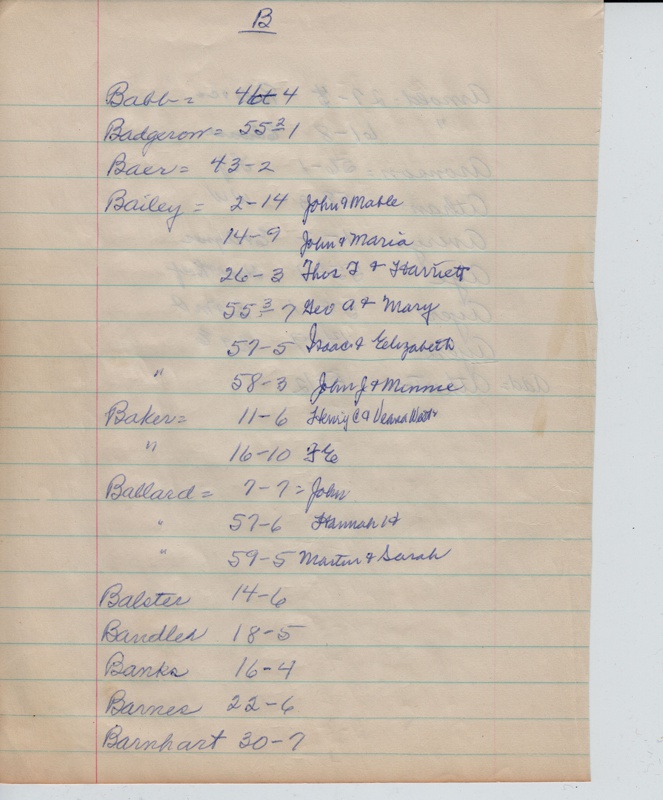 B
Babb = 46 4
Badgerow = 55 2-1
Baer = 43-2
Bailey = 2-14 John & Mable
14-9 John & Maria
26-3 Thos F & Harriett
55 3-7 Geo A & Mary
57-5 Isaac & Elizabeth
" 58-3 John J & Minnie
Baker = 11-6 Henry C &
" 16-10 F E
Ballard = 7-7 = John
" 57-6 Hannah
" 59-5 Martin & Sarah
Balster 14-6
Bandled 18-5
Banks 16-4
Barnes 22-6
Barnhart 30-7